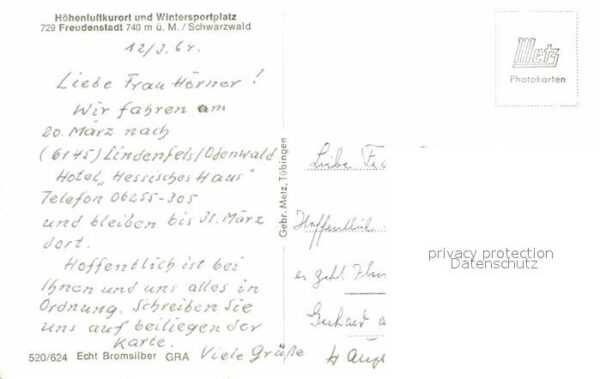 Höhenluftkurort und Wintersportplatz
729 Freudenstadt 740 m ü. M. / Schwarzwald
12/3.64.
Liebe Frau Hörner!
Wir fahren am
20. März nach
(6145) Lindenfels/Odenwald
Hotel „Hessisches Haus"
Telefon 06255-305
und bleiben bis 31. März
dort.
Hoffentlich ist bei
Ihnen und uns alles in
Ordnung. Schreiben Sie
uns auf beiliegender
Karte.
Viele Grüße
520/624 Echt Bromsilber GRA
Gebr. Metz, Tübingen
Metz
Photokarten
Liebe
Hoffentlich
es geht
Gerhard
privacy protection
Datenschutz